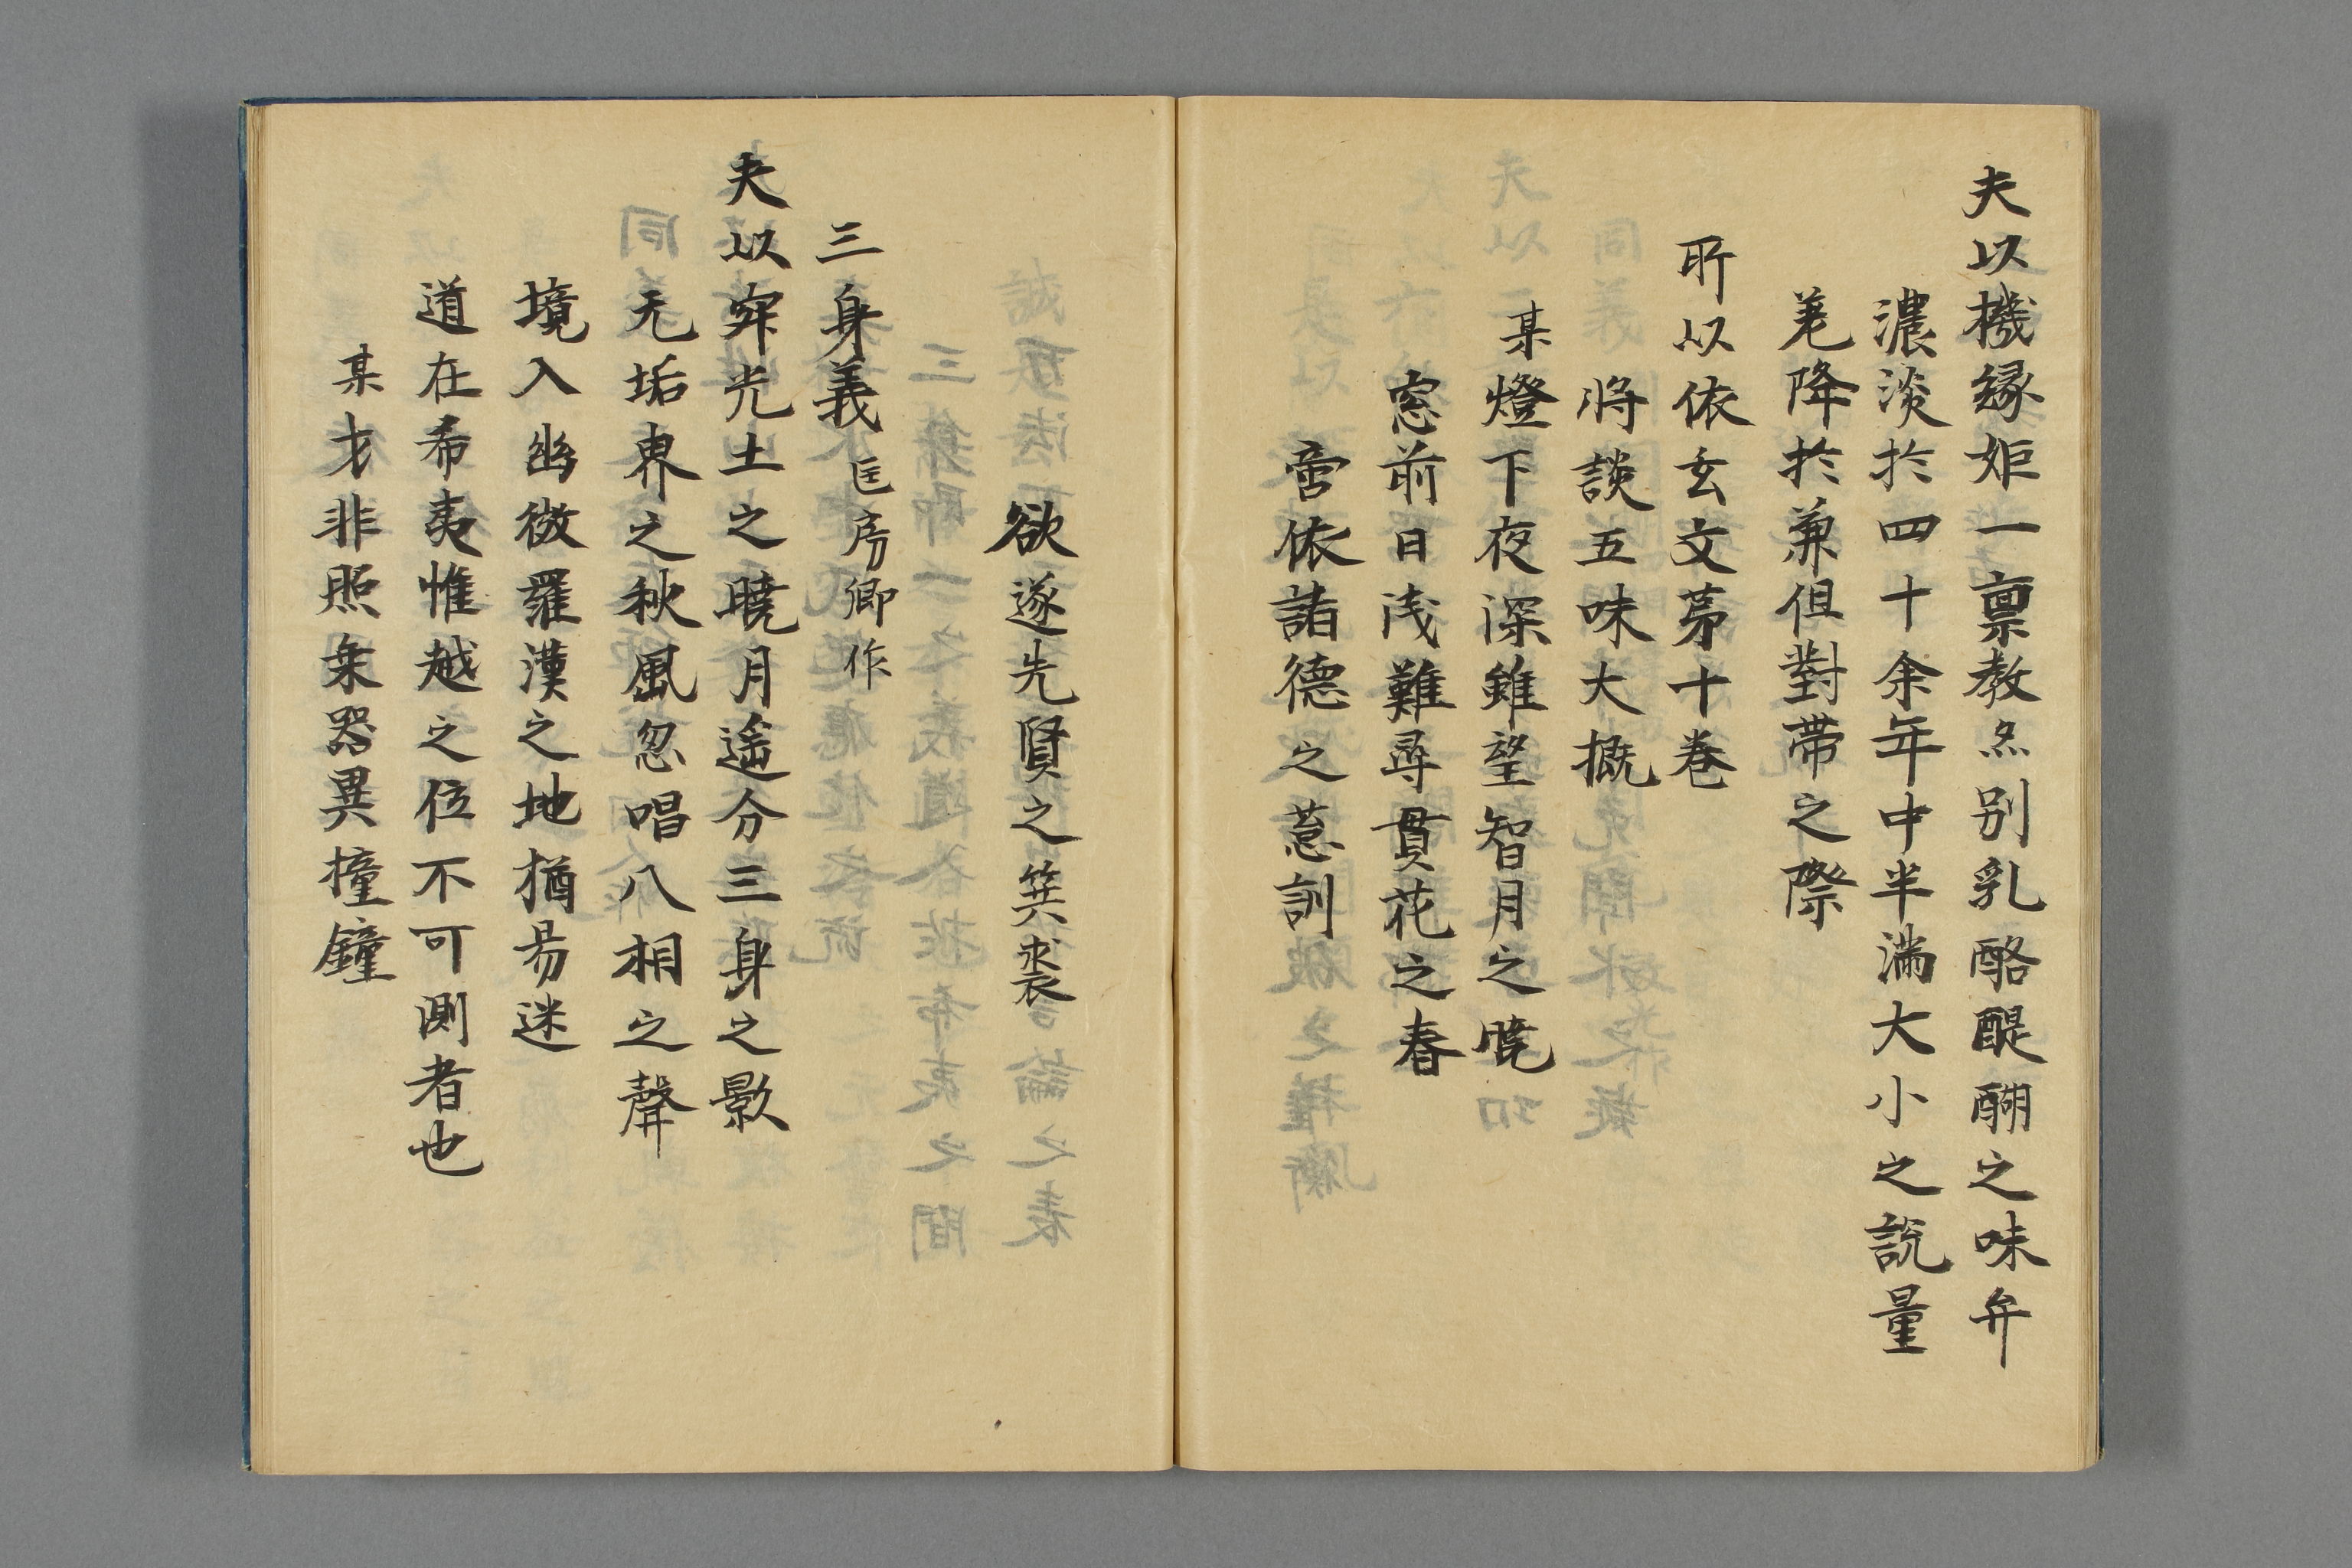 夫以機縁矩一禀教㸃別乳酪醍醐之味弁
濃淡於四十余年中半満大小之説量
荖降於兼但對帯之際
所以依玄文苐十巻
将談五味大概
某燈下夜深雖望智月之暁
窓前日浅難尋貫花之春
啻依諸德之慈訓
欲遂先賢之箕裘
三身義 匡房卿作
夫以寂光土之暁月遥分三身之影
无垢界之秋風忽唱八相之聲
境入幽微羅漢之地猶易迷
道在希夷惟越之位不可測者也
某才非照乗器異撞鐘